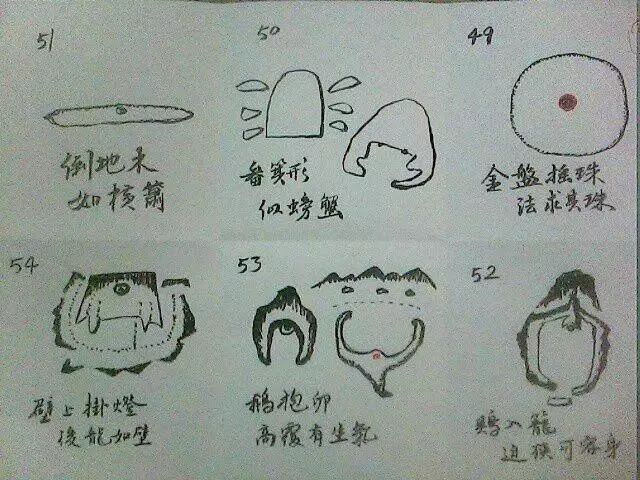 51
50
49
倒地木
如橫簫
番箕形
似螃蟹
金盤搖珠
法求真珠
54
53
52
壁上掛燈
後龍如壁
鵝抱卵
高窩有生氣
入籠
迫狹可容身